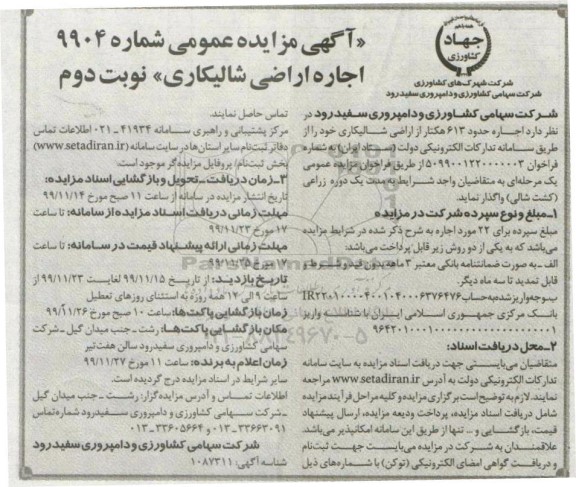 «آگهی مزایده عمومی شماره ۹۹۰۴
اجاره اراضی شالیکاری» نوبت دوم
جهاد
کشاورزی
شرکت شهرک‌های کشاورزی
شرکت سهامی کشاورزی و دامپروری سفیدرود
شرکت سهامی کشاورزی و دامپروری سفیدرود در
نظر دارد اجاره حدود ۶۱۳ هکتار از اراضی شالیکاری خود را از
طریق سامانه تدارکات الکترونیکی دولت (ستاد ایران) به شماره
فراخوان ۵۰۹۹۰۰۱۲۲۰۰۰۰۰۳ از طریق فراخوان مزایده عمومی
یک مرحله‌ای به متقاضیان واجد شرایط به مدت یک دوره زراعی
(کشت شالی) واگذار نماید.
۱ــ مبلغ و نوع سپرده شرکت در مزایده
مبلغ سپرده برای ۲۲ مورد اجاره به شرح ذکر شده در شرایط مزایده
می‌باشد که به یکی از دو روش زیر قابل پرداخت می‌باشد:
الف ــ به صورت ضمانتنامه بانکی معتبر ۳ ماهه بدون قید و شرط
قابل تمدید تا سه ماه دیگر.
ب ــ واریز وجه به حساب
بانک مرکزی جمهوری اسلامی ایران با شناسه واریز
۲ــ محل دریافت اسناد:
متقاضیان می‌بایستی جهت دریافت اسناد مزایده به سایت سامانه
تدارکات الکترونیکی دولت به آدرس www.setadiran.ir مراجعه
نمایند. لازم به توضیح است برگزاری مزایده و کلیه مراحل فرآیند مزایده
شامل دریافت اسناد مزایده، پرداخت ودیعه مزایده، ارسال پیشنهاد
قیمت، بازگشایی و ــ تنها از طریق این سامانه امکانپذیر می‌باشد.
علاقمندان به شرکت در مزایده می‌بایست جهت ثبت‌نام
و دریافت گواهی امضای الکترونیکی (توکن) با شماره‌های ذیل
تماس حاصل نمایند.
مرکز پشتیبانی و راهبری سامانه ۴۱۹۳۴ ــ ۰۲۱ اطلاعات تماس
دفاتر ثبت‌نام سایر استان‌ها در سایت سامانه (www.setadiran.ir)
بخش ثبت‌نام/ پروفایل مزایده‌گر موجود است.
۳ــ زمان دریافت ــ تحویل و بازگشایی اسناد مزایده:
تاریخ انتشار مزایده در سامانه از ساعت ۱۱ صبح مورخ ۹۹/۱۱/۱۴
مهلت زمانی دریافت اسناد مزایده از سامانه: تا ساعت
۱۷ مورخ ۹۹/۱۱/۲۳
مهلت زمانی ارائه پیشنهاد قیمت در سامانه: تا ساعت
۱۷ مورخ ۹۹/۱۱/۲۵
تاریخ بازدید: از تاریخ ۹۹/۱۱/۱۵ لغایت ۹۹/۱۱/۲۳ از
ساعت ۹ الی ۱۲ همه روزه به استثنای روزهای تعطیل
زمان بازگشایی پاکت‌ها: ساعت ۱۰ صبح مورخ ۹۹/۱۱/۲۶
مکان بازگشایی پاکت‌ها: رشت ــ جنب میدان گیل ــ شرکت
سهامی کشاورزی و دامپروری سفیدرود سالن هفت تیر
زمان اعلام به برنده: ساعت ۱۱ مورخ ۹۹/۱۱/۲۷
سایر شرایط در اسناد مزایده درج گردیده است.
اطلاعات تماس و آدرس مزایده گزار: رشت ــ جنب میدان گیل
ــ شرکت سهامی کشاورزی و دامپروری سفیدرود شماره تماس
۳۳۶۶۳۰۹۱ــ۰۱۳ و ۳۳۶۰۵۶۶۴ــ۰۱۳
شرکت سهامی کشاورزی و دامپروری سفیدرود
شناسه آگهی: ۱۰۸۷۳۱۱